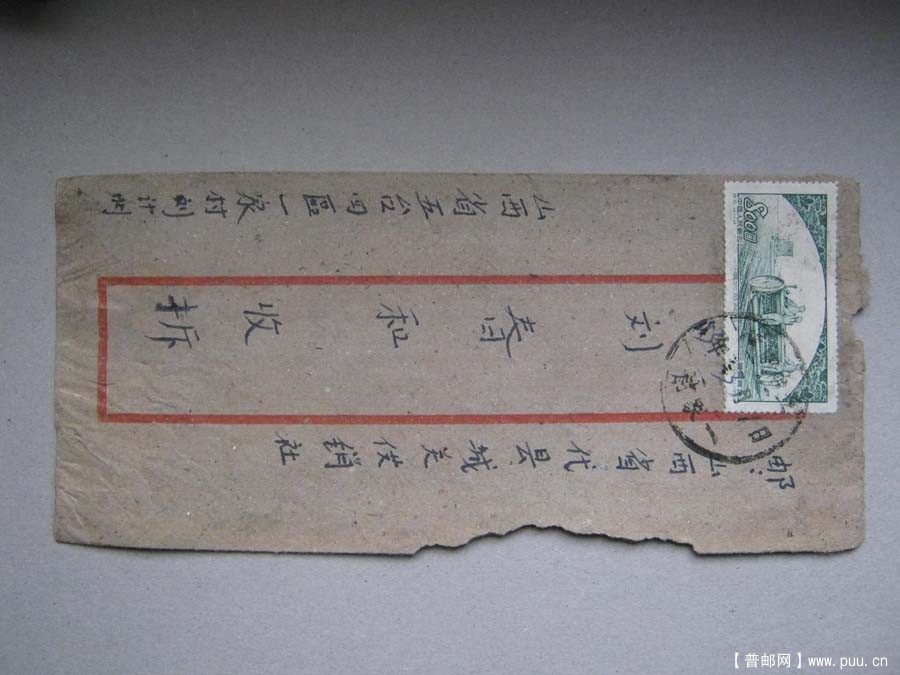 邮:
山西省代县城关供销社
刘春和收拆
山西省五台四區一家村刘计
800
【普邮网】www.puu.cn